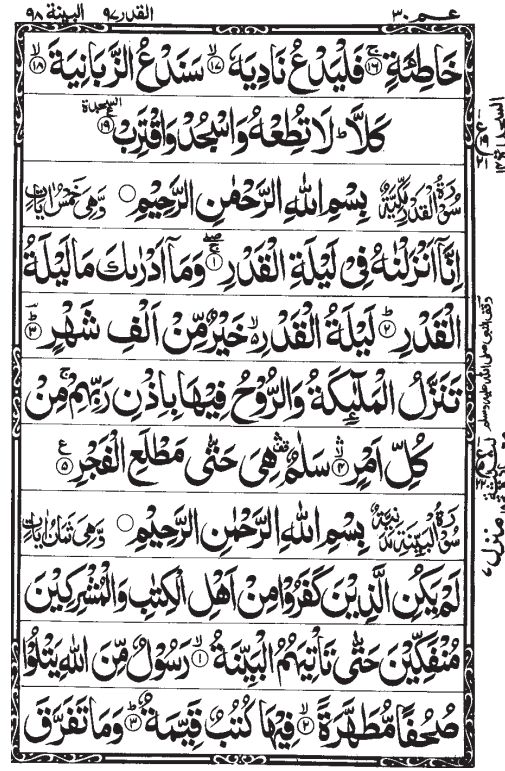 عم ٣٠ القدر ٩٧ البينة ٩٨
خَاطِئَةٍ ۚ ﴿١٦﴾ فَلْيَدْعُ نَادِيَهٗ ۙ ﴿١٧﴾ سَنَدْعُ الزَّبَانِيَةَ ۙ ﴿١٨﴾
كَلَّا ؕ لَا تُطِعْهُ وَاسْجُدْ وَاقْتَرِبْ ﴿١٩﴾ السجدة
سُوْرَةُ الْقَدْرِ مَكِّيَّةٌ بِسْمِ اللّٰهِ الرَّحْمٰنِ الرَّحِيْمِ ○ وَّهِيَ خَمْسُ اٰيَاتٍ
اِنَّاۤ اَنْزَلْنٰهُ فِيْ لَيْلَةِ الْقَدْرِ ۖۚ ﴿١﴾ وَمَاۤ اَدْرٰىكَ مَا لَيْلَةُ
الْقَدْرِ ؕ ﴿٢﴾ لَيْلَةُ الْقَدْرِ ۙ۬ خَيْرٌ مِّنْ اَلْفِ شَهْرٍ ؕ ﴿٣﴾
تَنَزَّلُ الْمَلٰٓئِكَةُ وَالرُّوْحُ فِيْهَا بِاِذْنِ رَبِّهِمْ ۚ مِنْ
كُلِّ اَمْرٍ ۙ ﴿٤﴾ سَلٰمٌ ۛ هِيَ حَتّٰى مَطْلَعِ الْفَجْرِ ﴿٥﴾ ع
سُوْرَةُ الْبَيِّنَةِ مَدَنِيَّةٌ بِسْمِ اللّٰهِ الرَّحْمٰنِ الرَّحِيْمِ ○ وَّهِيَ ثَمَانُ اٰيَاتٍ
لَمْ يَكُنِ الَّذِيْنَ كَفَرُوْا مِنْ اَهْلِ الْكِتٰبِ وَالْمُشْرِكِيْنَ
مُنْفَكِّيْنَ حَتّٰى تَاْتِيَهُمُ الْبَيِّنَةُ ۙ ﴿١﴾ رَسُوْلٌ مِّنَ اللّٰهِ يَتْلُوْا
صُحُفًا مُّطَهَّرَةً ۙ ﴿٢﴾ فِيْهَا كُتُبٌ قَيِّمَةٌ ؕ ﴿٣﴾ وَمَا تَفَرَّقَ
السجدة
وقف النبي صلى الله عليه وسلم
منزل ٧